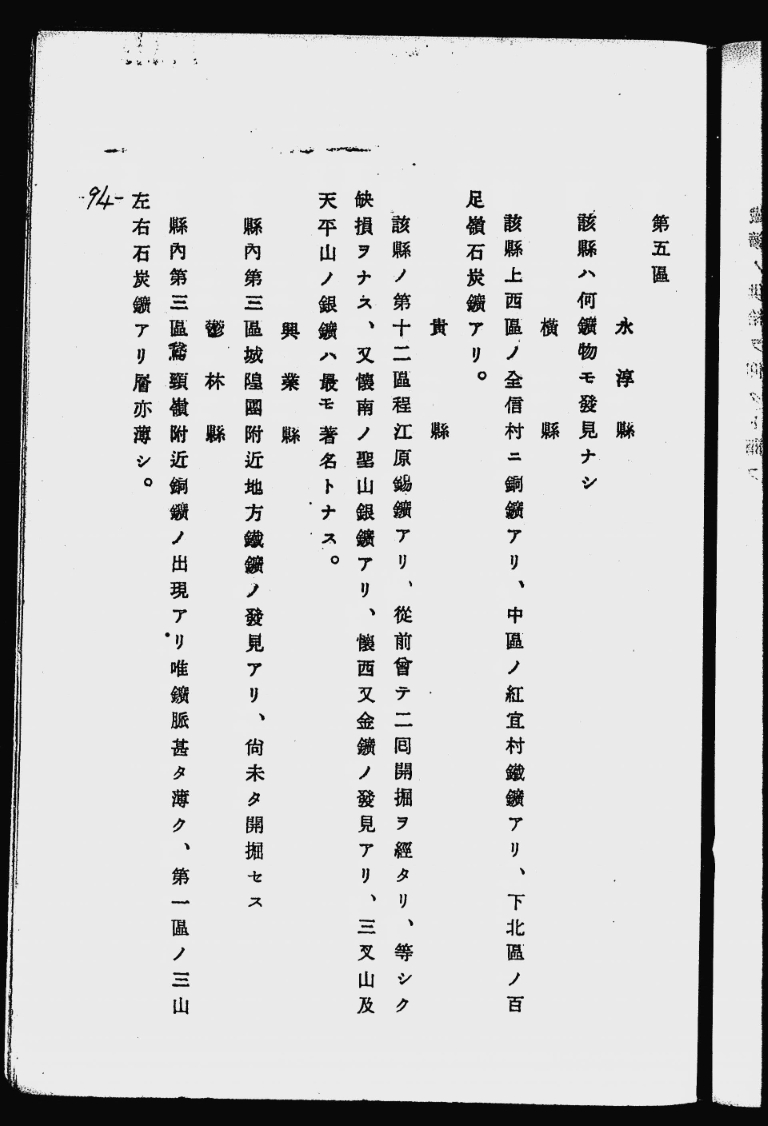 第五區
永淳縣
該縣ハ何鑛物モ發見ナシ
橫縣
該縣上西區ノ全信村ニ銅鑛アリ、中區ノ紅宜村鐵鑛アリ、下北區ノ百
足嶺石炭鑛アリ。
貴縣
該縣ノ第十二區程江原錫鑛アリ、從前曾テ二囘開掘ヲ經タリ、等シク
缺損ヲナス、又懷南ノ聖山銀鑛アリ、懷西又金鑛ノ發見アリ、三叉山及
天平山ノ銀鑛ハ最モ著名トナス。
興業縣
縣內第三區城隍圖附近地方鐵鑛ノ發見アリ、尙未タ開掘セス
鬱林縣
縣內第三區鵞頸嶺附近銅鑛ノ出現アリ唯鑛脈甚タ薄ク、第一區ノ三山
左右石炭鑛アリ層亦薄シ。
-94-